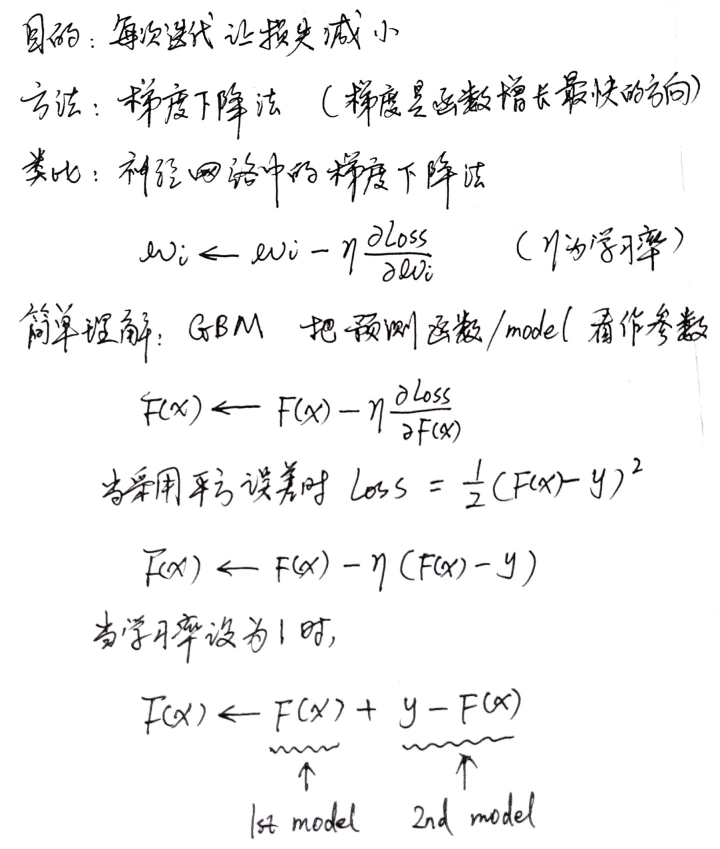 目的：每次迭代让损失减小
方法：梯度下降法 （梯度是函数增长最快的方向）
类比：神经网络中的梯度下降法
wi ← wi − η ∂Loss/∂wi （η为学习率）
简单理解：GBM 把预测函数/model 看作参数
F(x) ← F(x) − η ∂Loss/∂F(x)
当采用平方误差时 Loss = 1/2 (F(x)− y)²
F(x) ← F(x) − η (F(x) − y)
当学习率设为1时,
F(x) ← F(x) + y − F(x)
↑ ↑
1st model 2nd model